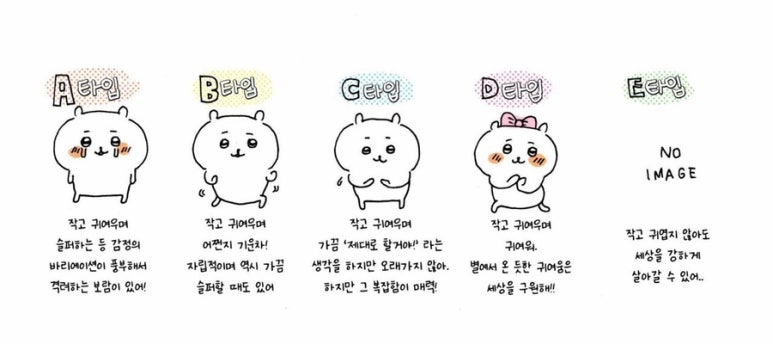 A타입
작고 귀여우며
슬퍼하는 등 감정의
바리에이션이 풍부해서
격려하는 보람이 있어!
B타입
작고 귀여우며
어쩐지 기운차!
자립적이며 역시 가끔
슬퍼할 때도 있어
C타입
작고 귀여우며
가끔 '제대로 할거야!' 라는
생각을 하지만 오래가지 않아.
하지만 그 복잡함이 매력!
D타입
작고 귀여우며
귀여워.
별에서 온 듯한 귀여움은
세상을 구원해!!
E타입
NO
IMAGE
작고 귀엽지 않아도
세상을 강하게
살아갈 수 있어..